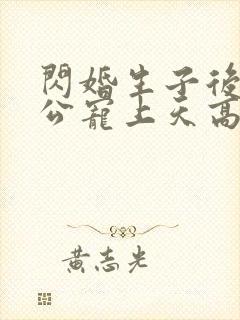 閃婚生子後
公寵上天高
黃志光